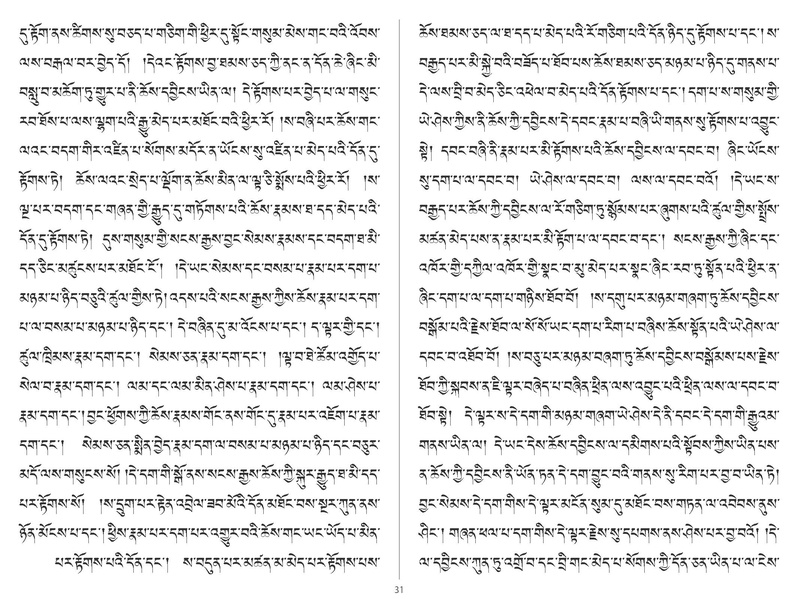 དུ་རྟོག་ནས་ཚིགས་སུ་བཅད་པ་གཅིག་གི་ཕྱིར་དུ་སྟོང་གསུམ་མེས་གང་བའི་འོབས་
ལས་བརྒལ་བར་བྱེད་དོ། །དེའང་རྟོགས་བྱ་ཐམས་ཅད་ཀྱི་ནང་ན་དོན་ཆེ་ཞིང་མི་
བསླུ་བ་མཆོག་ཏུ་གྱུར་པ་ནི་ཆོས་དབྱིངས་ཡིན་ལ། དེ་རྟོགས་པར་བྱེད་པ་ལ་གསུང་
རབ་ཐོས་པ་ལས་ལྷག་པའི་རྒྱུ་མེད་པར་མཐོང་བའི་ཕྱིར་རོ། །ས་བཞི་པར་ཆོས་གང་
ལའང་བདག་གིར་འཛིན་པ་སོགས་མདོར་ན་ཡོངས་སུ་འཛིན་པ་མེད་པའི་དོན་དུ་
རྟོགས་ཏེ། ཆོས་ལའང་སྲེད་པ་ལྡོག་ན་ཆོས་མིན་ལ་ལྟ་ཅི་སྨོས་པའི་ཕྱིར་རོ། །ས་
ལྔ་པར་བདག་དང་གཞན་གྱི་རྒྱུད་དུ་གཏོགས་པའི་ཆོས་རྣམས་ཐ་དད་མེད་པའི་
དོན་དུ་རྟོགས་ཏེ། དུས་གསུམ་གྱི་སངས་རྒྱས་བྱང་སེམས་རྣམས་དང་བདག་ཐ་མི་
དད་ཅིང་མཚུངས་པར་མཐོང་ངོ་། །དེ་ཡང་སེམས་དང་བསམ་པ་རྣམ་པར་དག་པ་
མཉམ་པ་ཉིད་བཅུའི་ཚུལ་གྱིས་ཏེ། འདས་པའི་སངས་རྒྱས་ཀྱིས་ཆོས་རྣམ་པར་དག་
པ་ལ་བསམ་པ་མཉམ་པ་ཉིད་དང་། དེ་བཞིན་དུ་མ་འོངས་པ་དང་། ད་ལྟར་གྱི་དང་།
ཚུལ་ཁྲིམས་རྣམ་དག་དང་། སེམས་ཅན་རྣམ་དག་དང་། །ལྟ་བ་ཐེ་ཚོམ་འགྱོད་པ་
སེལ་བ་རྣམ་དག་དང་། ལམ་དང་ལམ་མིན་ཤེས་པ་རྣམ་དག་དང་། ལམ་ཤེས་པ་
རྣམ་དག་དང་། བྱང་ཕྱོགས་ཀྱི་ཆོས་རྣམས་གོང་ནས་གོང་དུ་རྣམ་པར་འཇོག་པ་རྣམ་
དག་དང་། སེམས་ཅན་སྨིན་བྱེད་རྣམ་དག་ལ་བསམ་པ་མཉམ་པ་ཉིད་དང་བཅུར་
མདོ་ལས་གསུངས་སོ། །དེ་དག་གི་སྒོ་ནས་སངས་རྒྱས་ཆོས་ཀྱི་སྐུར་རྒྱུད་ཐ་མི་དད་
པར་རྟོགས་སོ། །ས་དྲུག་པར་རྟེན་འབྲེལ་ཟབ་མོའི་དོན་མཐོང་བས་སྔར་ཀུན་ནས་
ཉོན་མོངས་པ་དང་། ཕྱིས་རྣམ་པར་དག་པར་འགྱུར་བའི་ཆོས་གང་ཡང་ཡོད་པ་མིན་
པར་རྟོགས་པའི་དོན་དང་། ས་བདུན་པར་མཚན་མ་མེད་པར་རྟོགས་པས་
ཆོས་ཐམས་ཅད་ལ་ཐ་དད་པ་མེད་པའི་རོ་གཅིག་པའི་དོན་ཉིད་དུ་རྟོགས་པ་དང་། ས་
བརྒྱད་པར་མི་སྐྱེ་བའི་བཟོད་པ་ཐོབ་པས་ཆོས་ཐམས་ཅད་མཉམ་པ་ཉིད་དུ་གནས་པ་
དེ་ལས་བྲི་བ་མེད་ཅིང་འཕེལ་བ་མེད་པའི་དོན་རྟོགས་པ་དང་། དག་པ་ས་གསུམ་གྱི་
ཡེ་ཤེས་ཀྱིས་ནི་ཆོས་ཀྱི་དབྱིངས་དེ་དབང་རྣམ་པ་བཞི་ཡི་གནས་སུ་རྟོགས་པ་འབྱུང་
སྟེ། དབང་བཞི་ནི་རྣམ་པར་མི་རྟོགས་པའི་ཆོས་དབྱིངས་ལ་དབང་བ། ཞིང་ཡོངས་
སུ་དག་པ་ལ་དབང་བ། ཡེ་ཤེས་ལ་དབང་བ། ལས་ལ་དབང་བའོ། །དེ་ཡང་ས་
བརྒྱད་པར་ཆོས་ཀྱི་དབྱིངས་ལ་རོ་གཅིག་ཏུ་སྙོམས་པར་ཞུགས་པའི་ཚུལ་གྱིས་སྤྲོས་
མཚན་མེད་པས་ན་རྣམ་པར་མི་རྟོག་པ་ལ་དབང་བ་དང་། སངས་རྒྱས་ཀྱི་ཞིང་དང་
འཁོར་གྱི་དཀྱིལ་འཁོར་གྱི་སྣང་བ་མུ་མེད་པར་སྣང་ཞིང་རབ་ཏུ་སྟོན་པའི་ཕྱིར་ན་
ཞིང་དག་པ་ལ་དག་པ་གཉིས་ཐོབ་བོ། །ས་དགུ་པར་མཉམ་གཞག་ཏུ་ཆོས་དབྱིངས་
བསྒོམ་པའི་རྗེས་ཐོབ་ལ་སོ་སོ་ཡང་དག་པ་རིག་པ་བཞིས་ཆོས་སྟོན་པའི་ཡེ་ཤེས་ལ་
དབང་བ་འཐོབ་བོ། །ས་བཅུ་པར་མཉམ་བཞག་ཏུ་ཆོས་དབྱིངས་བསྒོམས་པས་རྗེས་
ཐོབ་ཀྱི་སྐབས་ན་ཇི་ལྟར་བཞེད་པ་བཞིན་ཕྲིན་ལས་འབྱུང་བའི་ཕྲིན་ལས་ལ་དབང་བ་
ཐོབ་སྟེ། དེ་ལྟར་ས་དེ་དག་གི་མཉམ་གཞག་ཡེ་ཤེས་དེ་ནི་དབང་དེ་དག་གི་རྒྱུའམ་
གནས་ཡིན་ལ། དེ་ཡང་དེས་ཆོས་དབྱིངས་ལ་དམིགས་པའི་སྟོབས་ཀྱིས་ཡིན་པས་
ན་ཆོས་ཀྱི་དབྱིངས་ནི་ཡོན་ཏན་དེ་དག་བྱུང་བའི་གནས་སུ་རིག་པར་བྱ་བ་ཡིན་ཏེ།
བྱང་སེམས་དེ་དག་གིས་དེ་ལྟར་མངོན་སུམ་དུ་མཐོང་བས་གཏན་ལ་འབེབས་ནུས་
ཤིང་། གཞན་ཕལ་པ་དག་གིས་དེ་ལྟར་རྗེས་སུ་དཔགས་ནས་ཤེས་པར་བྱ་བའོ། །དེ་
ལ་དབྱིངས་ཀུན་ཏུ་འགྲོ་བ་དང་བྲི་གང་མེད་པ་སོགས་ཀྱི་དོན་ཅན་ཡིན་པ་ལ་ངེས་
31